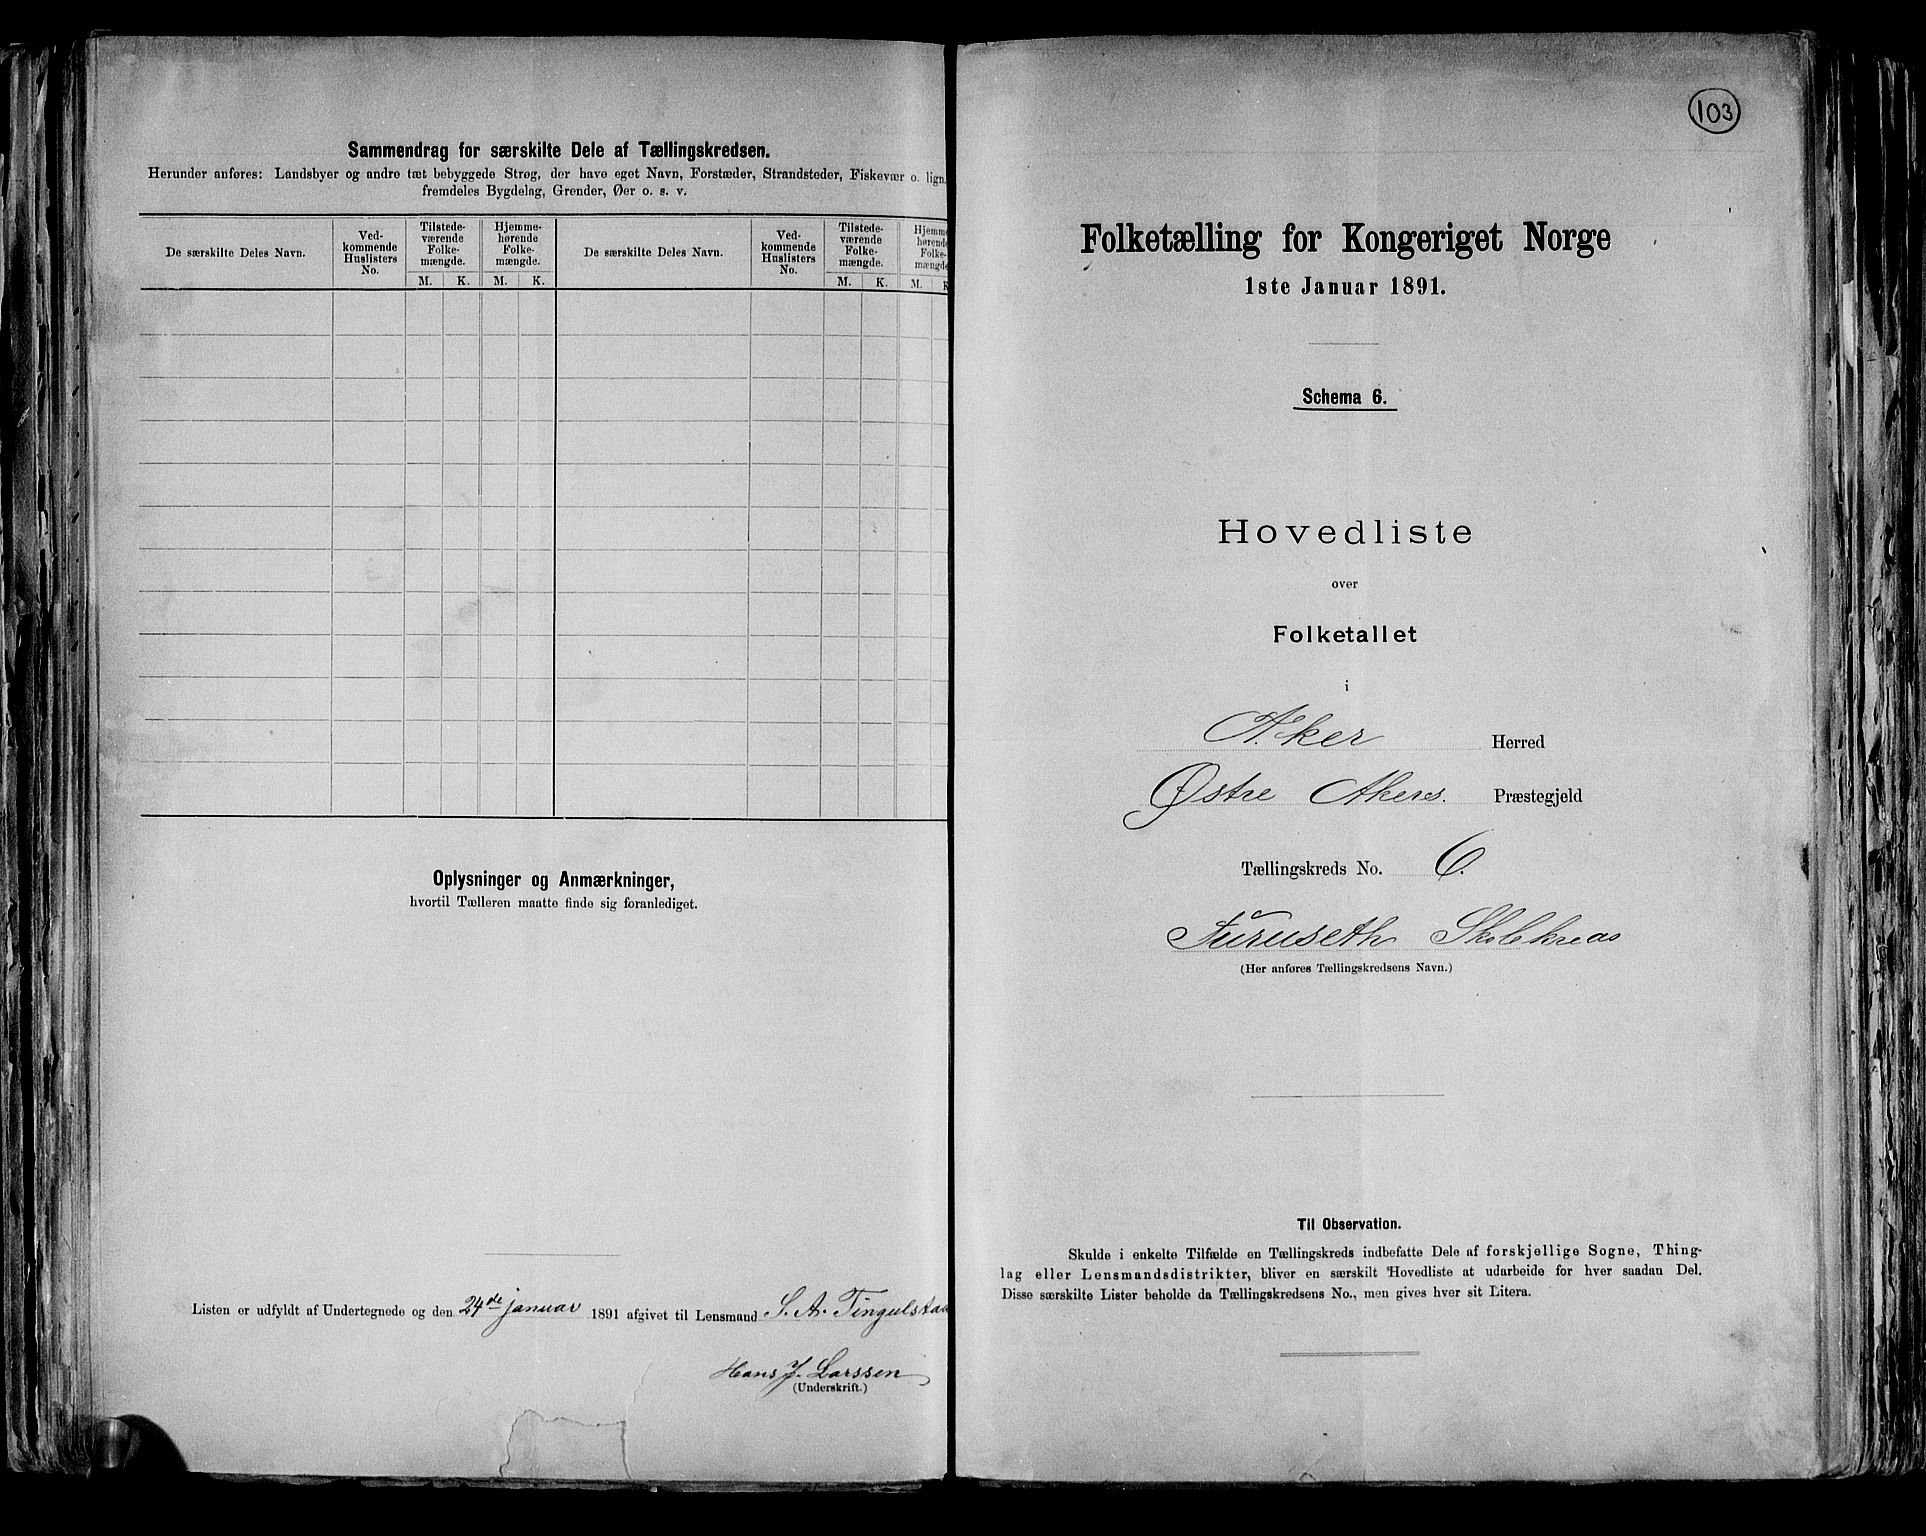 Sammendrag for særskilte Dele af Tællingskredsen.
Herunder anføres: Landsbyer og andre tæt bebyggede Strøg, der have eget Navn, Forstæder, Strandsteder, Fiskevær o. lign.
fremdeles Bygdelag, Grender, Øer o. s. v.
De særskilte Deles Navn.
Ved-
kommende
Huslisters
No.
Tilstede-
værende
Folke-
mængde.
M. K.
Hjemme-
hørende
Folke-
mængde.
M. K.
De særskilte Deles Navn.
Ved-
kommende
Huslisters
No.
Tilstede-
værende
Folke-
mængde.
M. K.
Hjemme
hørende
Folke-
mængde
M. K
Oplysninger og Anmærkninger,
hvortil Tælleren maatte finde sig foranlediget.
Listen er udfyldt af Undertegnede og den 24de januar 1891 afgivet til Lensmand S. A. Tingulstad
Hans J. Larssen
(Underskrift.)
103
Folketælling for Kongeriget Norge
1ste Januar 1891.
Schema 6.
Hovedliste
over
Folketallet
i
Aker Herred
Østre Akers. Præstegjeld
Tællingskreds No. 6.
Furuseth Skolekreds
(Her anføres Tællingskredsens Navn.)
Til Observation.
Skulde i enkelte Tilfælde en Tællingskreds indbefatte Dele af forskjellige Sogne, Thing-
lag eller Lensmandsdistrikter, bliver en særskilt Hovedliste at udarbeide for hver saadan Del.
Disse særskilte Lister beholde da Tællingskredsens No., men gives hver sit Litera.